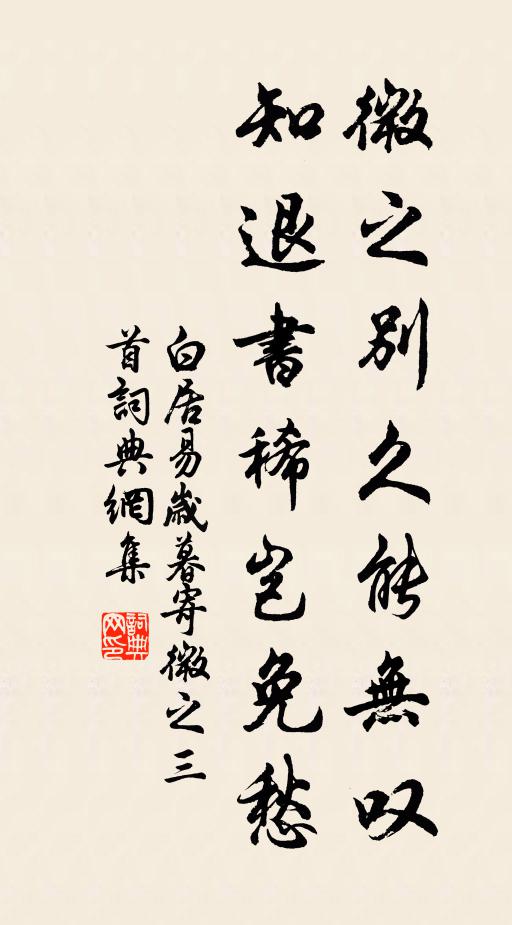 微之別久能無叹
知退書稀岂免愁
白居易歲暮寄微之三
首詞典網集
詞典
网印